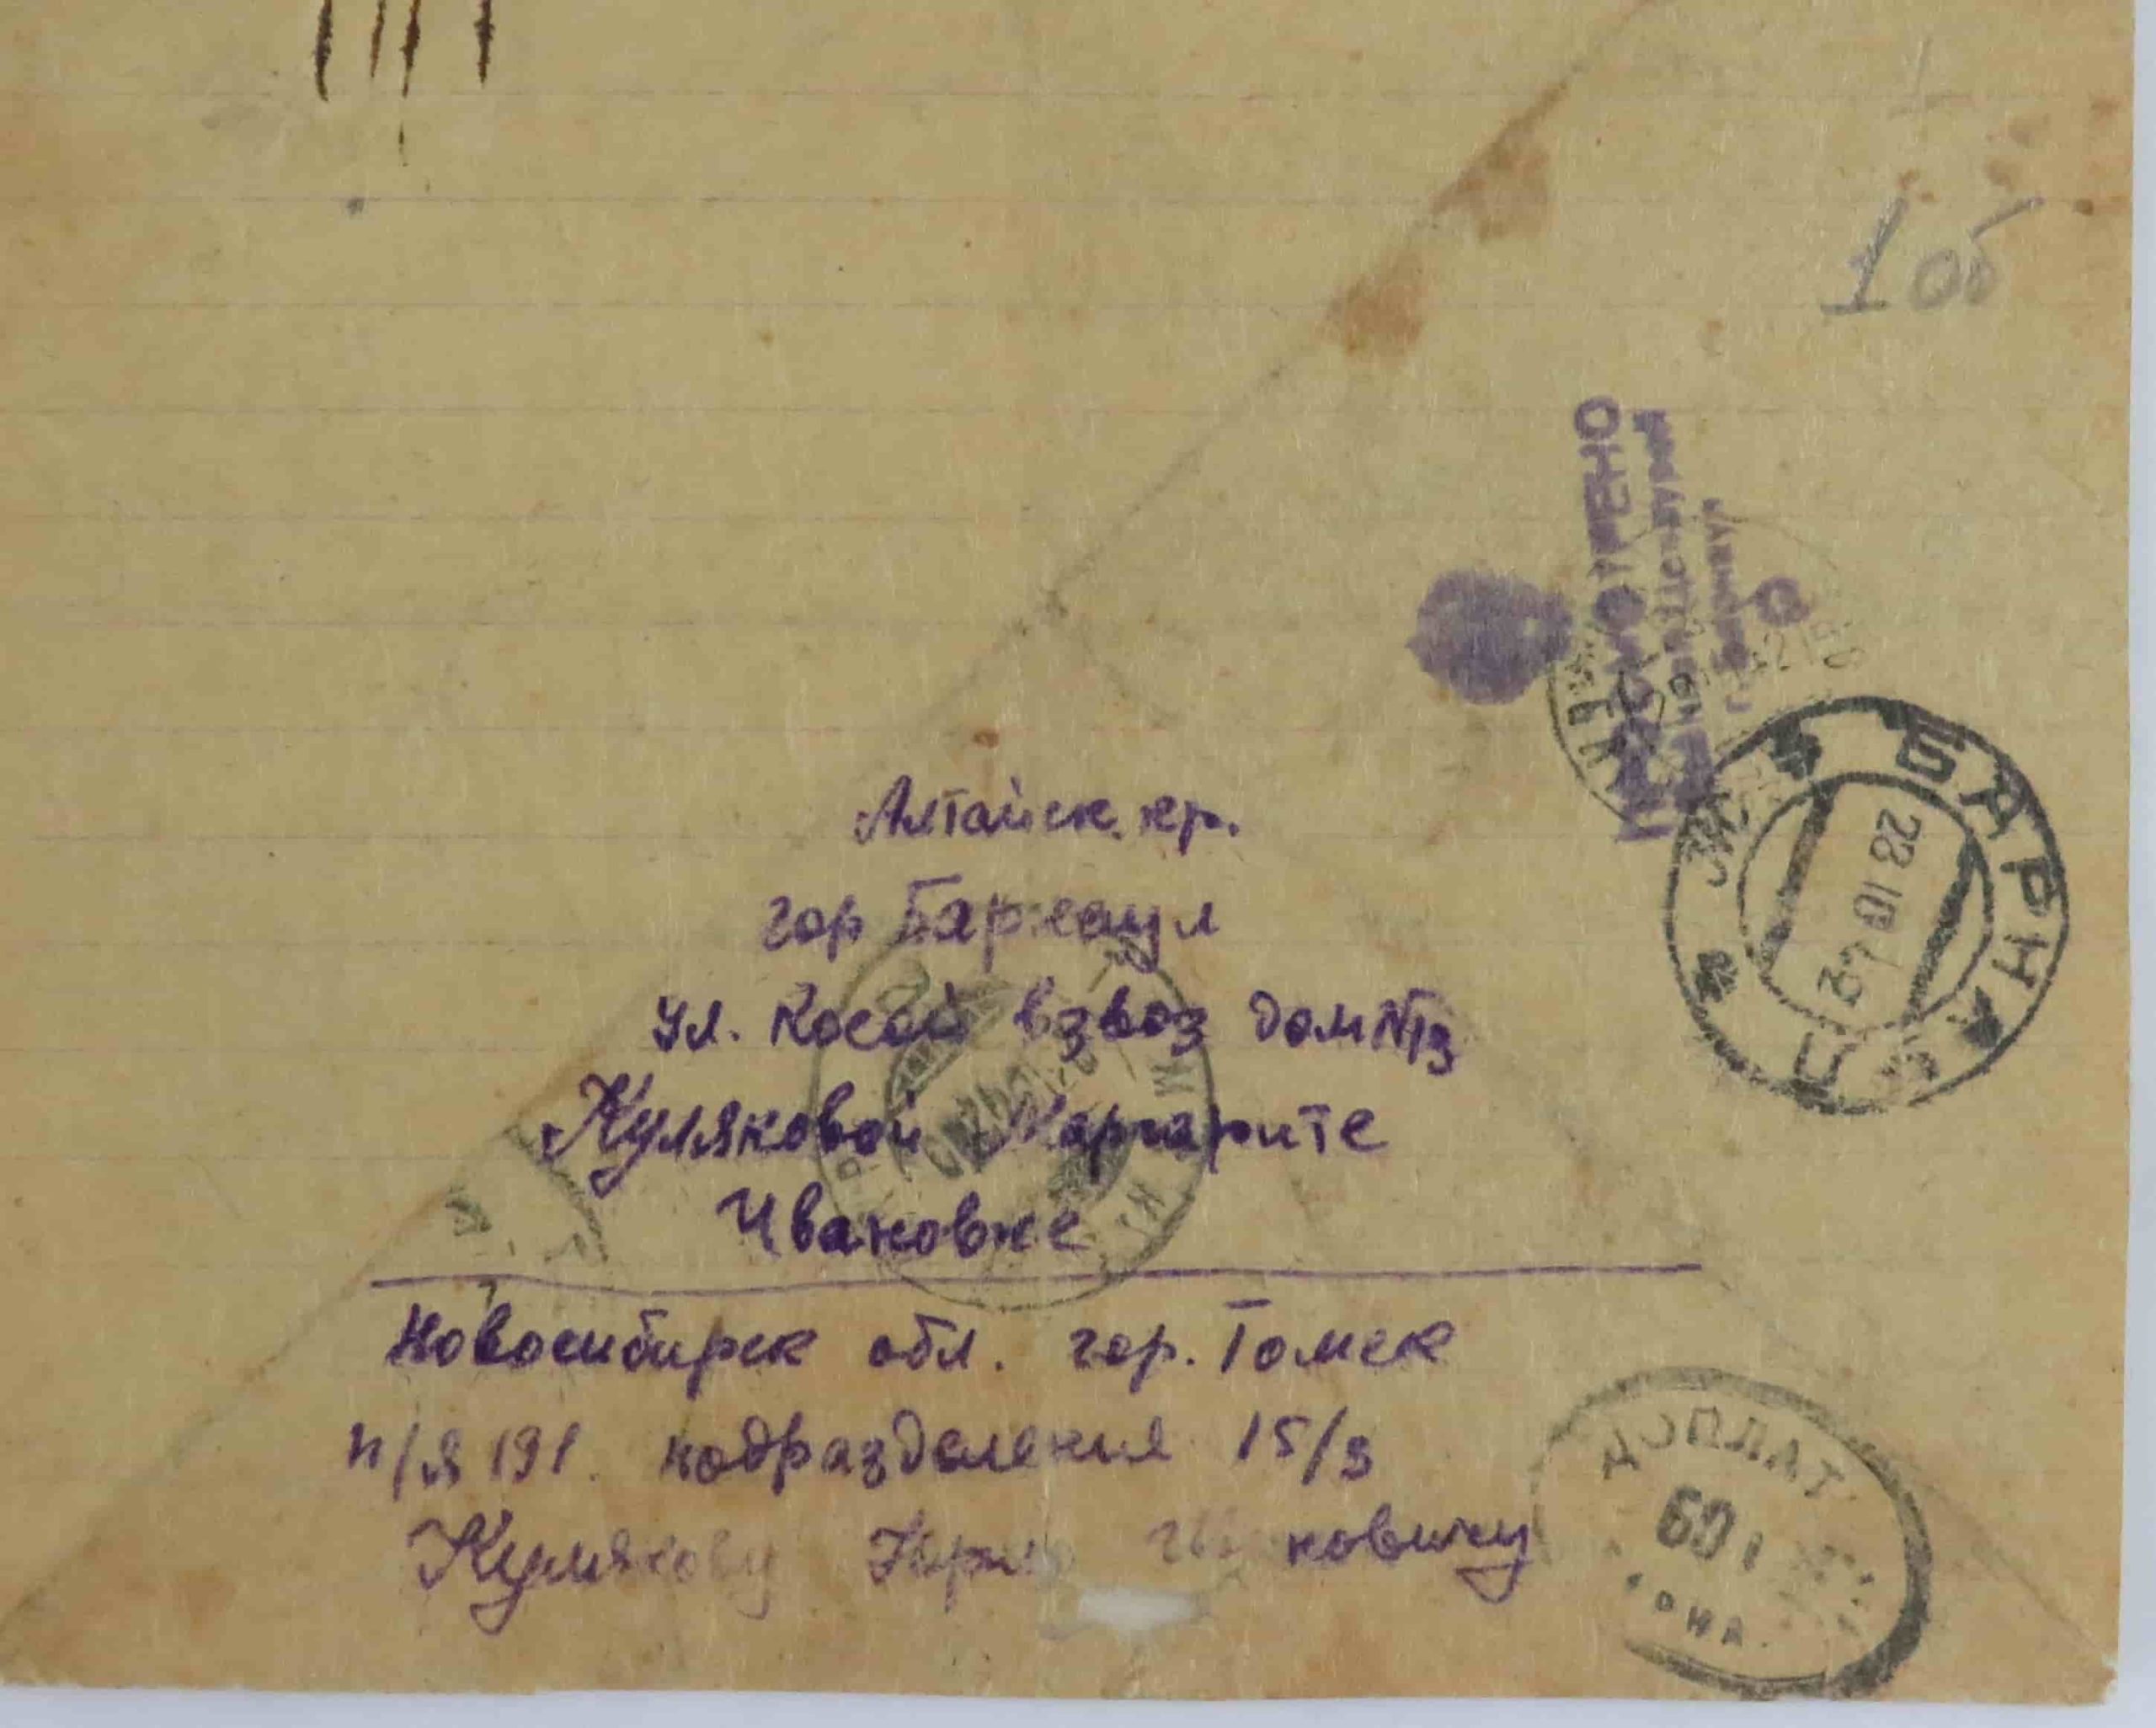 1 об
ПРОСМОТРЕНО
Военной Цензурой
г. Барнаул
БАРНАУЛ
28 10 42
Алтайск. кр.
гор Барнаул
ул. Косой взвоз дом №13
Куляковой Маргарите
Ивановне
Новосибирск обл. гор. Томск
п/я 191. подразделения 15/3
Кулякову
ДОПЛАТ
60